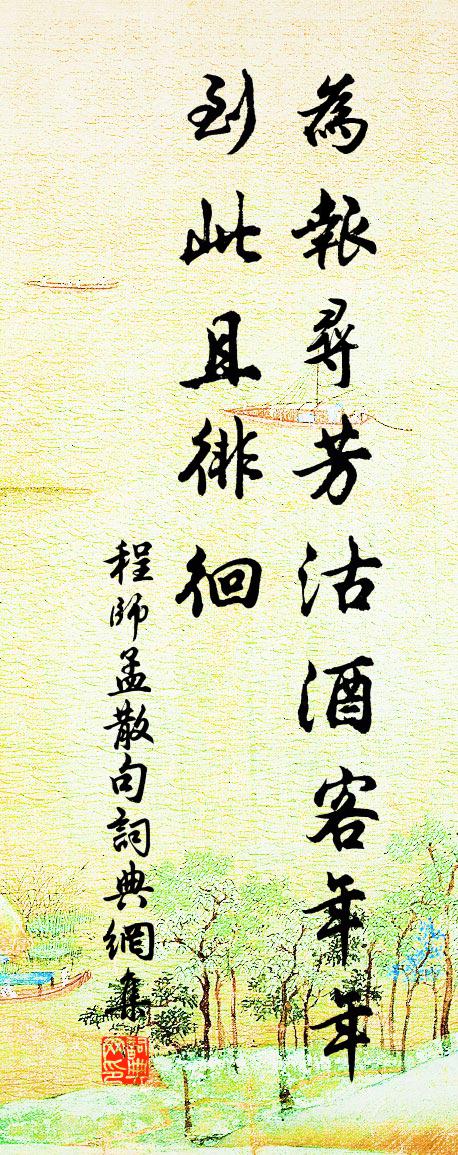 為報尋芳沽酒客年年
到此且徘徊
程師孟散句詞典網集